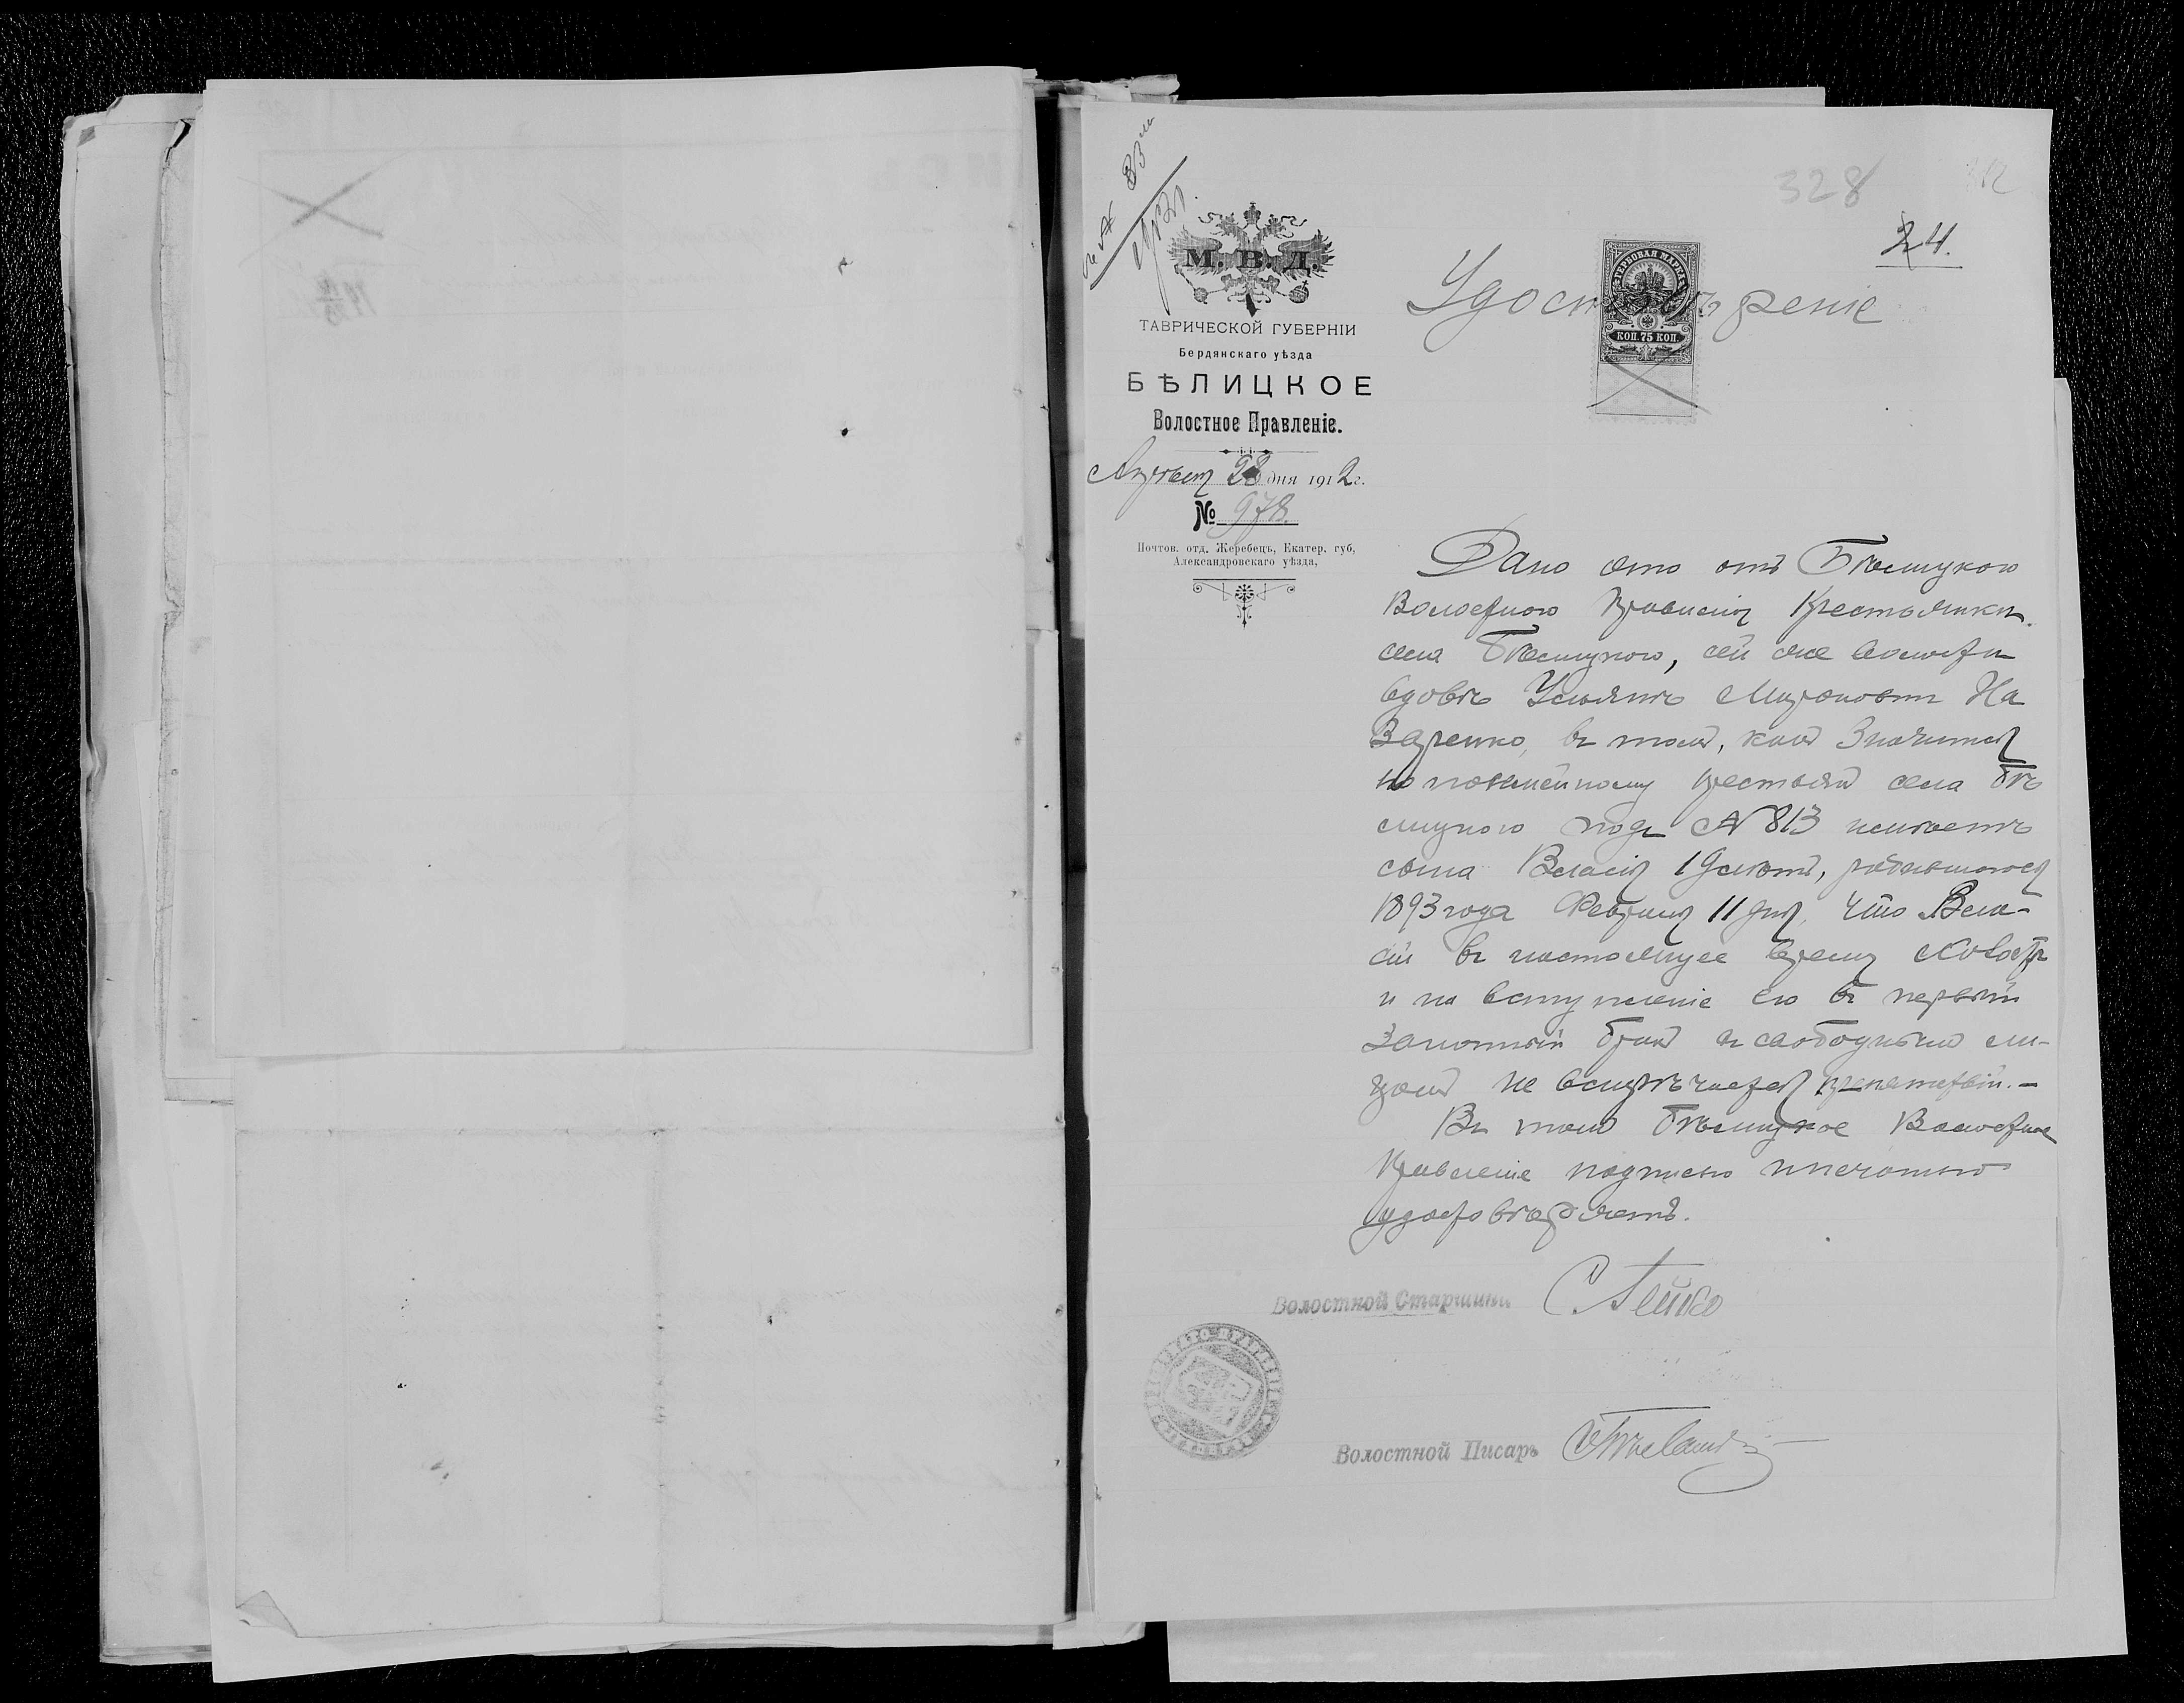 328
24.
М. В. Д.
ТАВРИЧЕСКОЙ ГУБЕРНІИ
Бердянскаго уѣзда
БѢЛИЦКОЕ
Волостное Правленіе.
Апрѣля 28 дня 1912 г.
№ 978.
Почтов. отд. Жеребецъ, Екатер. губ,
Александровскаго уѣзда,
ГЕРБОВАЯ МАРКА
КОП. 75 КОП.
Удостовѣреніе
Дано это отъ Бѣлицкого
Волостного Правленія Крестьянки
села Бѣлицкого, сей же волости
вдовѣ Ульянѣ Мироновой На
заренко, въ томъ, какъ значится
по посемейному крестьян села Бѣ
лицкого подъ № 813 имѣетъ
сына Власія 19 лѣтъ, родившагося
1893 года Февраля 11 дня, что Вла-
сій въ настоящее время холостъ
и на вступленіе его въ первый
законный бракъ съ свободнымъ ли-
цомъ не встрѣчается препятствій.-
Въ томъ Бѣлицкое Волостное
Правленіе подписью и печатью
удостовѣряетъ.
Волостной Старшина
Волостной Писарь